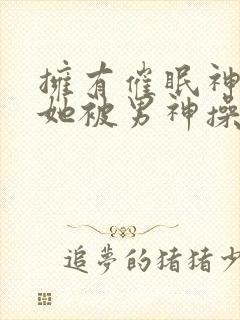 擁有催眠神
她被男神操
追夢的猪猪少